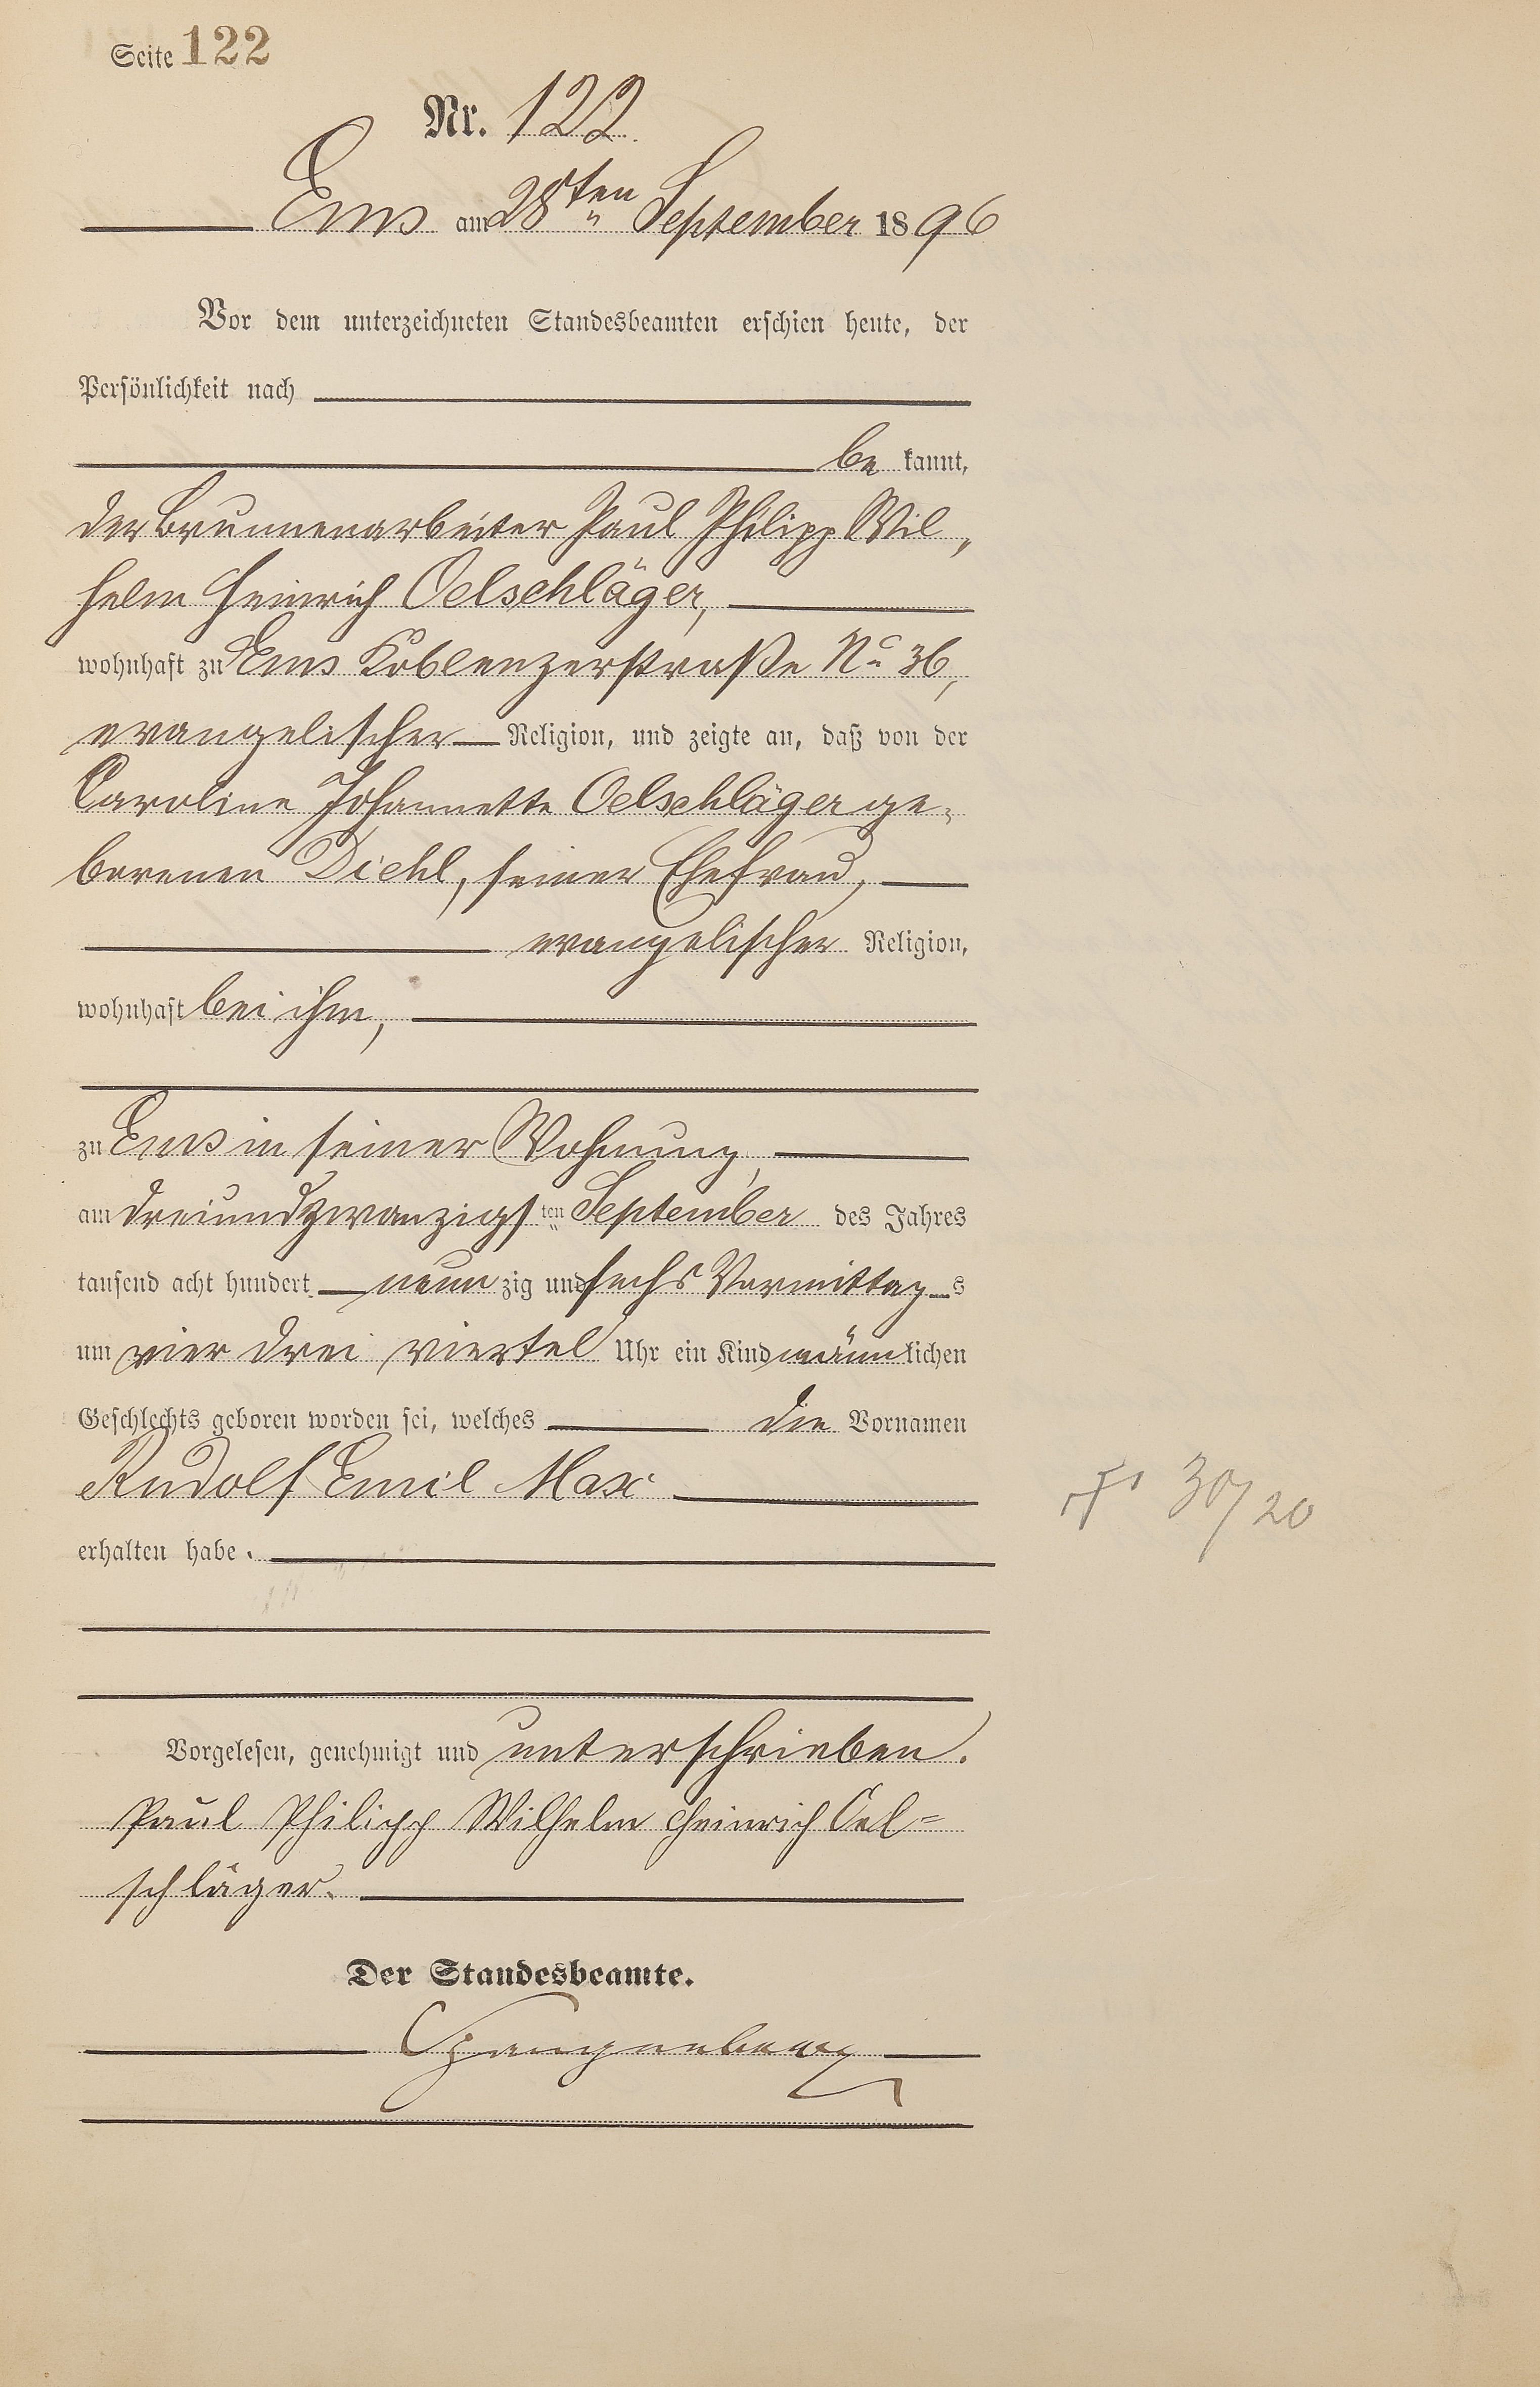 Seite 122
Nr. 122.
Ems am 28ten September 1896
Vor dem unterzeichneten Standesbeamten erschien heute, der
Persönlichkeit nach
be kannt,
der Brunnenarbeiter Paul Philipp Wil„
helm Heinrich Oelschläger,
wohnhaft zu Ems Koblenzerstraße No 36,
evangelischer Religion, und zeigte an, daß von der
Caroline Johannette Oelschläger ge„
borenen Diehl, seiner Ehefrau,
evangelischer Religion,
wohnhaft bei ihm,
zu Ems in seiner Wohnung,
am dreiundzwanzigsten September des Jahres
tausend acht hundert neun zig und sechs Vormittags
um vier drei viertel Uhr ein Kind männlichen
Geschlechts geboren worden sei, welches die Vornamen
Rudolf Emil Max
30/20
erhalten habe.
Vorgelesen, genehmigt und unterschrieben.
Paul Philipp Wilhelm Heinrich Oel=
schläger.
Der Standesbeamte.